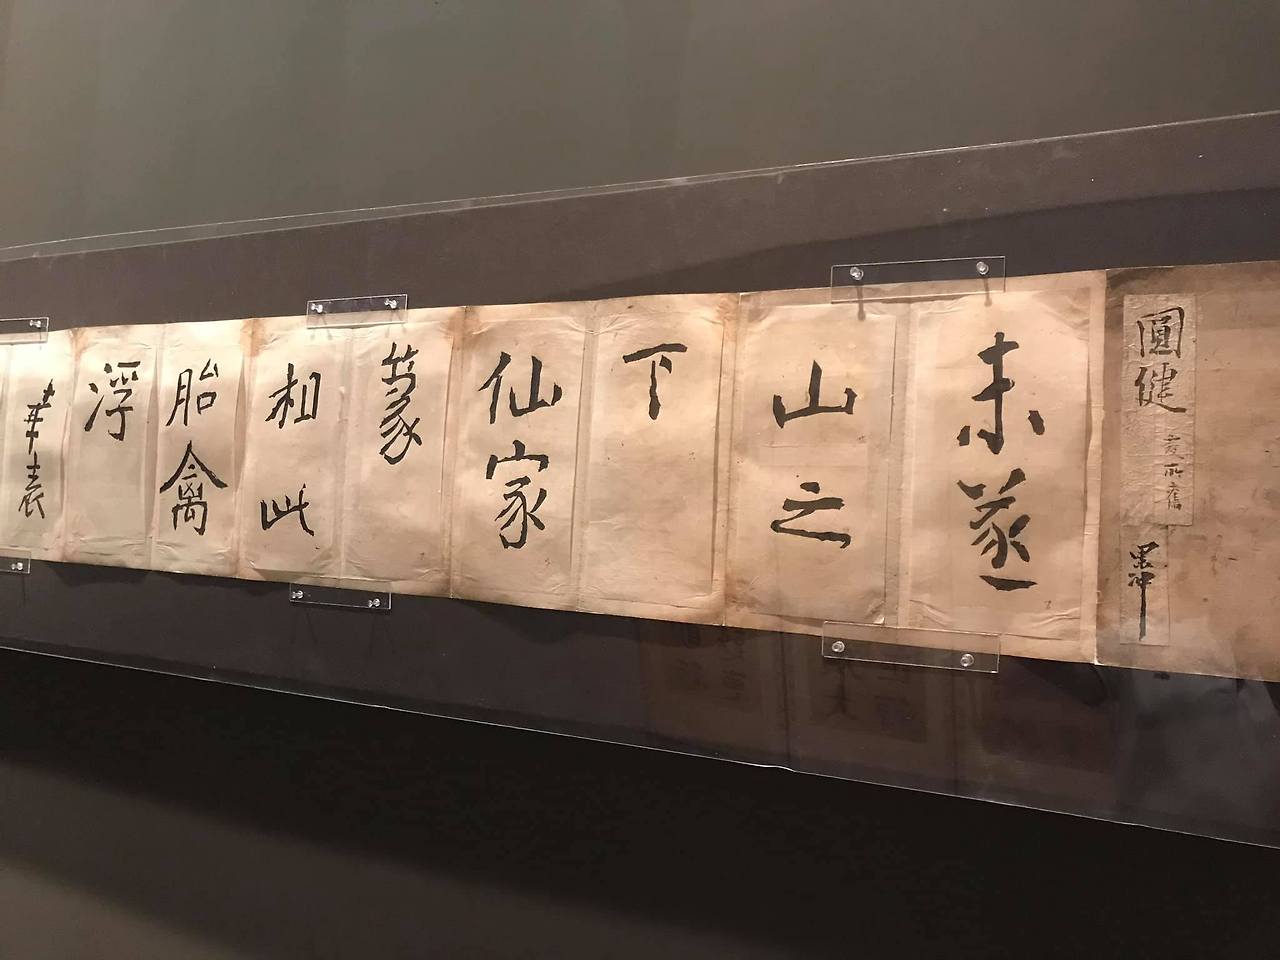 圓健
未遂
山之
下
仙家
篆
相此
胎禽
浮
華表